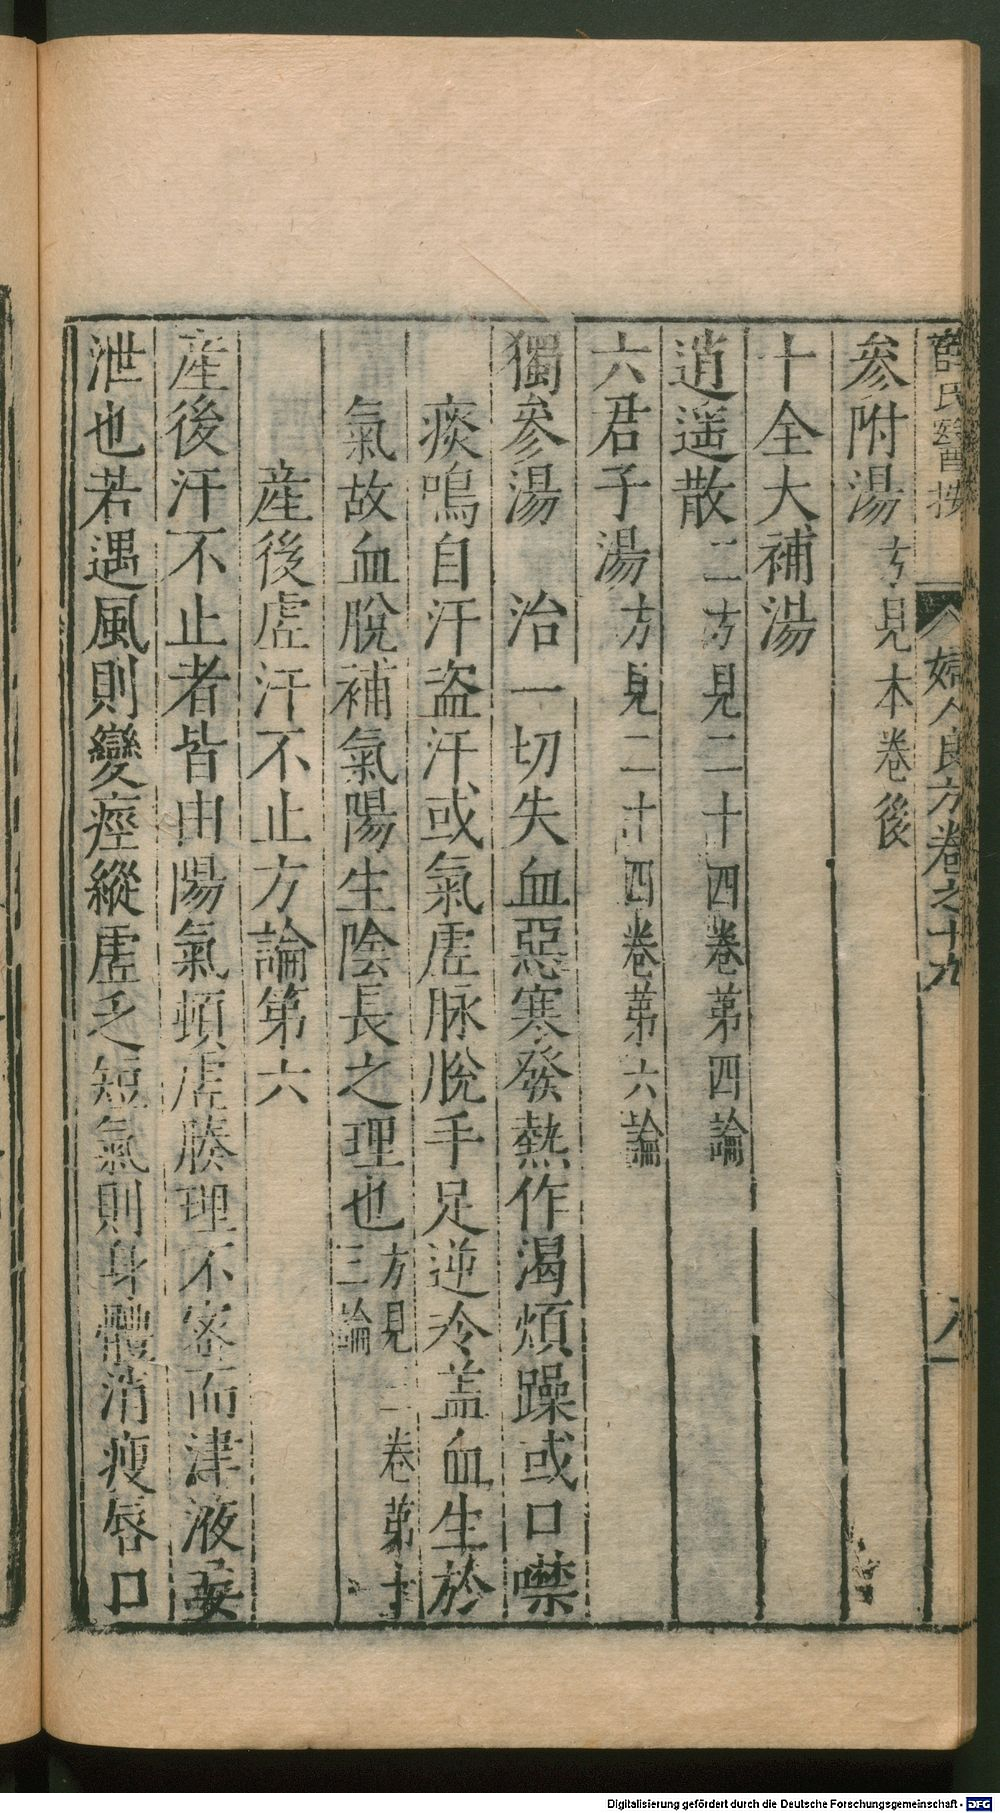 薛氏醫按 婦人良方卷之十九 八
參附湯 方見本卷後
十全大補湯
逍遥散 二方見二十四卷第四論
六君子湯 方見二十四卷第六論
獨參湯 治一切失血惡寒發熱作渴煩躁或口噤
痰鳴自汗盗汗或氣虛脉脫手足逆冷盖血生於
氣故血脫補氣陽生陰長之理也 方見三卷第十三論
産後虛汗不止方論第六
産後汗不止者皆由陽氣頓虛腠理不密而津液妄
泄也若遇風則變痙縱虛乏短氣則身體消瘦唇口
Digitalisierung gefördert durch die Deutsche Forschungsgemeinschaft - DFG